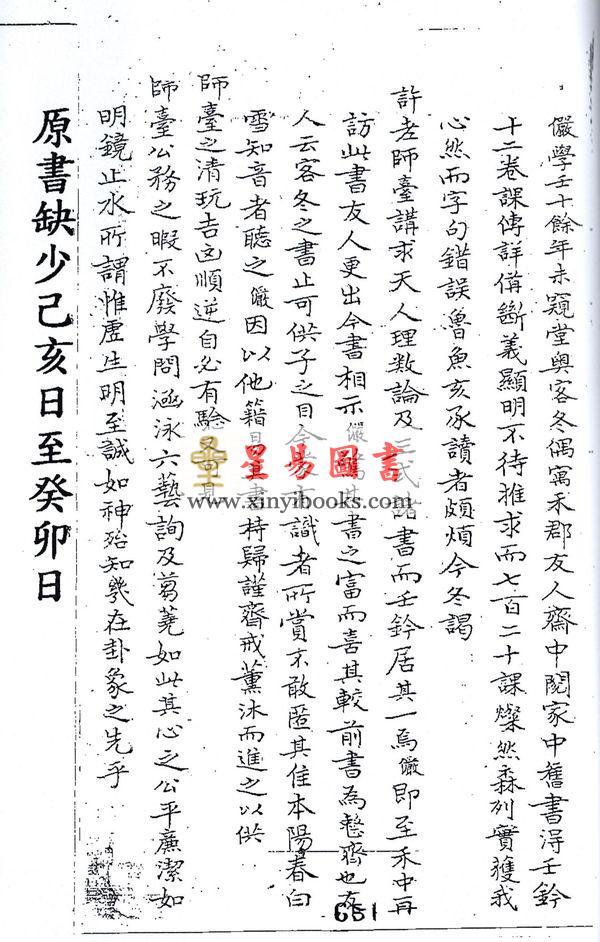 儼學壬十餘年未窺堂奧客冬偶寓禾郡友人齋中閱家中舊書得壬鈐
十二卷課傳詳備斷義顯明不待推求而七百二十課燦然森列實獲我
心然而字句錯誤魯魚亥豕讀者頗煩今冬謁
許老師臺講求天人理數論及三式諸書而壬鈐居其一焉儼即至禾中再
訪此書友人更出今書相示儼驚其書之富而喜其較前書為整齊也友
人云客冬之書止可供子之目今書而識者所賞不敢匿其佳本陽春白
雪知音者聽之儼因以他籍易其書持歸謹齋戒薰沐而進之以供
師臺之清玩吉凶順逆自必有驗
師臺公務之暇不廢學問涵泳六藝詢及蒭蕘如此其心之公平廉潔如
明鏡止水所謂惟虛生明至誠如神殆知幾在卦象之先乎
原書缺少己亥日至癸卯日
星易圖書
www.xinyibooks.com
651